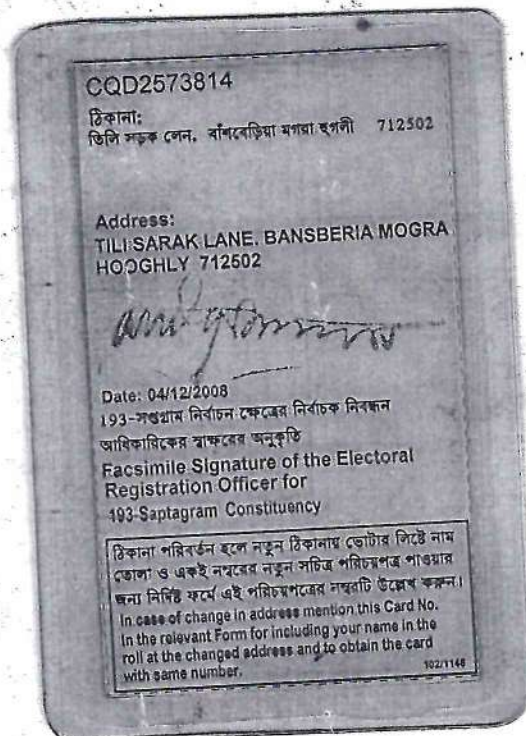 CQD2573814
ঠিকানা:
তিলি সড়ক লেন, বাঁশবেড়িয়া মগরা হুগলী 712502
Address:
TILI SARAK LANE, BANSBERIA MOGRA
HOOGHLY 712502
Date: 04/12/2008
193-সপ্তগ্রাম নির্বাচন ক্ষেত্রের নির্বাচক নিবন্ধন
আধিকারিকের স্বাক্ষরের অনুকৃতি
Facsimile Signature of the Electoral
Registration Officer for
193-Saptagram Constituency
ঠিকানা পরিবর্তন হলে নতুন ঠিকানায় ভোটার লিষ্টে নাম
তোলা ও একই নম্বরের নতুন সচিত্র পরিচয়পত্র পাওয়ার
জন্য নির্দিষ্ট ফর্মে এই পরিচয়পত্রের নম্বরটি উল্লেখ করুন।
In case of change in address mention this Card No.
In the relevant Form for including your name in the
roll at the changed address and to obtain the card
with same number.
102/1146